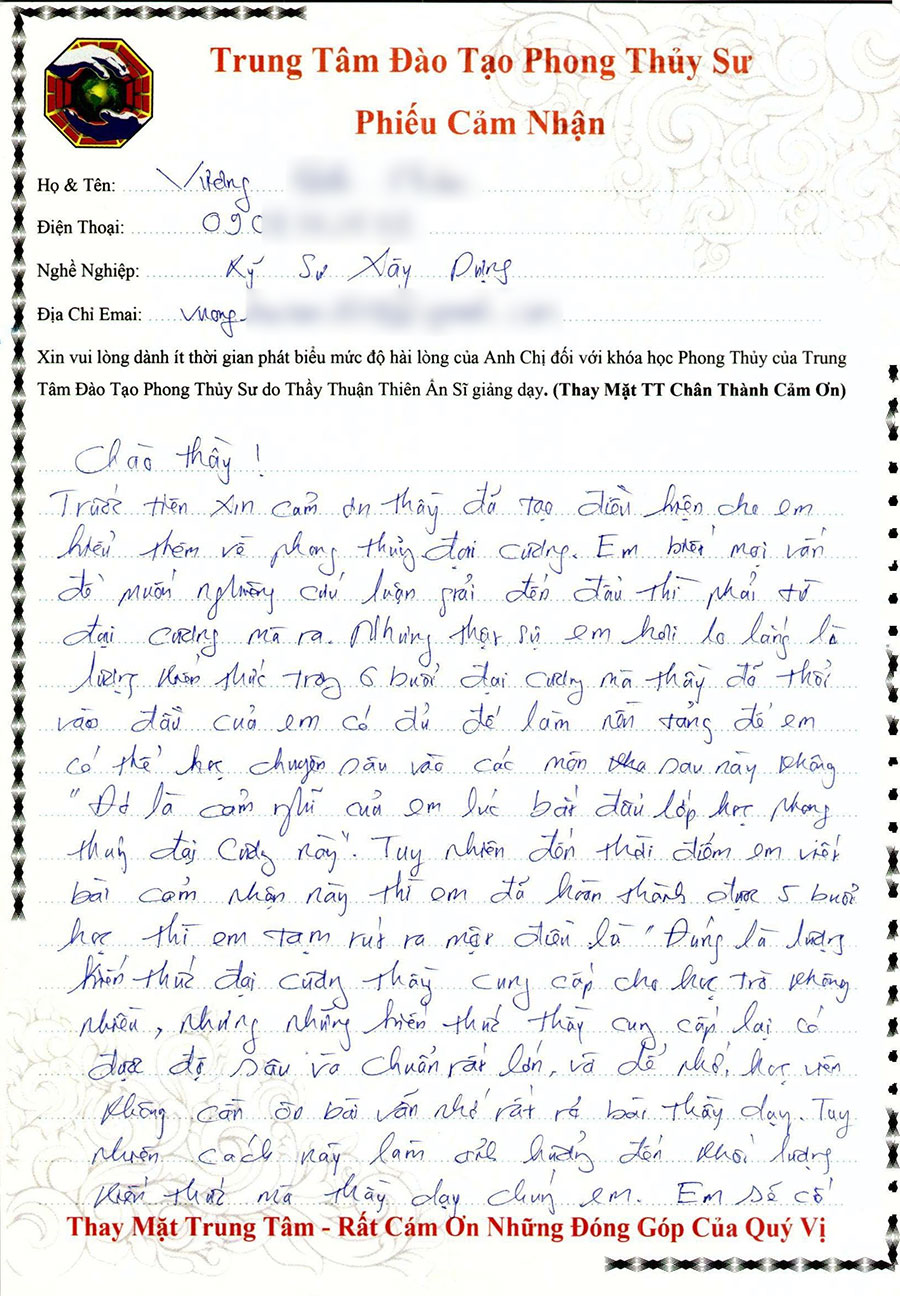 Trung Tâm Đào Tạo Phong Thủy Sư
Phiếu Cảm Nhận
Họ & Tên: Vương
Điện Thoại: 090
Nghề Nghiệp: Kỹ Sư Xây Dựng
Địa Chỉ Emai: vuong
Xin vui lòng dành ít thời gian phát biểu mức độ hài lòng của Anh Chị đối với khóa học Phong Thủy của Trung
Tâm Đào Tạo Phong Thủy Sư do Thầy Thuận Thiên Ẩn Sĩ giảng dạy. (Thay Mặt TT Chân Thành Cảm Ơn)
Chào thầy !
Trước tiên xin cảm ơn thầy đã tạo điều kiện cho em
hiểu thêm về phong thủy đại cương. Em biết mọi vấn
đề muốn nghiêng cứu luận giải đến đâu thì phải từ
đại cương mà ra. Nhưng thật sự em hơi lo lắng là
lượng kiến thức trong 6 buổi đại cương mà thầy đã thổi
vào đầu của em có đủ để làm nền tảng để em
có thể học chuyên sâu vào các môn sau này không
"Đó là cảm nghĩ của em lúc bắt đầu lớp học phong
thuỷ đại cương này". Tuy nhiên đến thời điểm em viết
bài cảm nhận này thì em đã hoàn thành được 5 buổi
học thì em tạm rút ra một điều là "Đúng là lượng
kiến thức đại cương thầy cung cấp cho học trò không
nhiều, nhưng những kiến thức thầy cung cấp lại có
được độ sâu và chuẩn rất lớn, và dễ nhớ, học viên
không cần ôn bài vẫn nhớ rất rõ bài thầy dạy. Tuy
nhiên cách này làm ảnh hưởng đến khối lượng
kiến thức mà thầy dạy chúng em. Em sẽ cố
Thay Mặt Trung Tâm - Rất Cám Ơn Những Đóng Góp Của Quý Vị